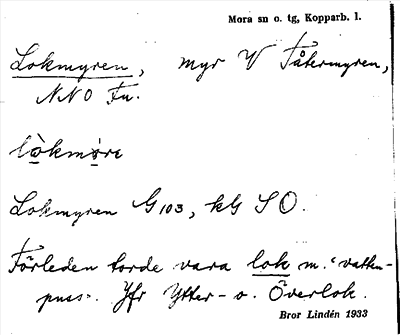 Mora sn o. tg, Kopparb. l.
Lokmyren, myr V Tåtermyren,
NNO Fu.
lòkmỳre
Lokmyren G 103, kG SO.
Förleden torde vara lok m. "vatten-
puss". Jfr Ytter- o. Överlok.
Bror Lindén 1933